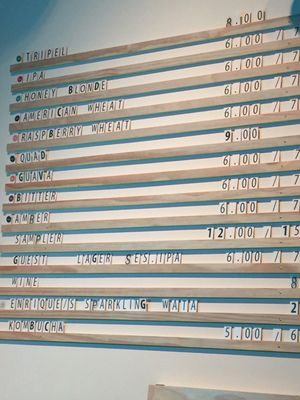 TRIPEL 8.00
IPA 6.00/7
HONEY BLONDE 6.00/7
AMERICAN WHEAT 6.00/7
RASPBERRY WHEAT 6.00/7
QUAD 9.00
GUAVA 6.00/7
BITTER 6.00/7
AMBER 6.00/7
SAMPLER 12.00/15
GUEST LAGER SES.IPA 6.00/7
WINE 8
ENRIQUE/S SPARKLING WATA 2
KOMBUCHA 5.00/6